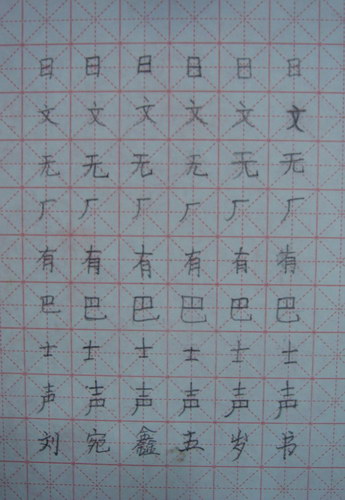 日日日日日日
文文文文文文
无无无无无无
厂厂厂厂厂厂
有有有有有有
巴巴巴巴巴巴
士士士士士士
声声声声声声
刘宛鑫五岁书